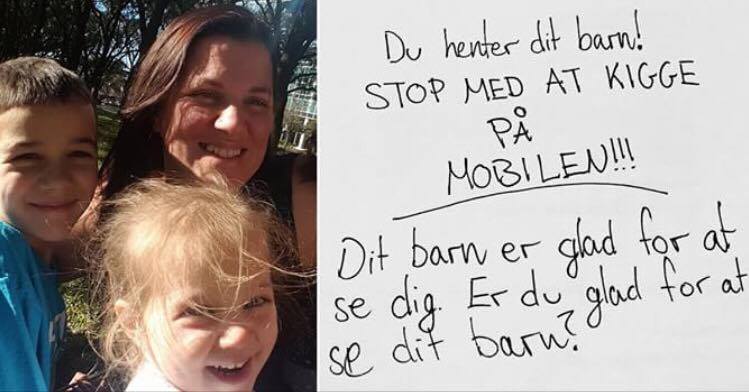 Du henter dit barn!
STOP MED AT KIGGE
PÅ
MOBILEN!!!
Dit barn er glad for at
se dig. Er du glad for at
se dit barn?